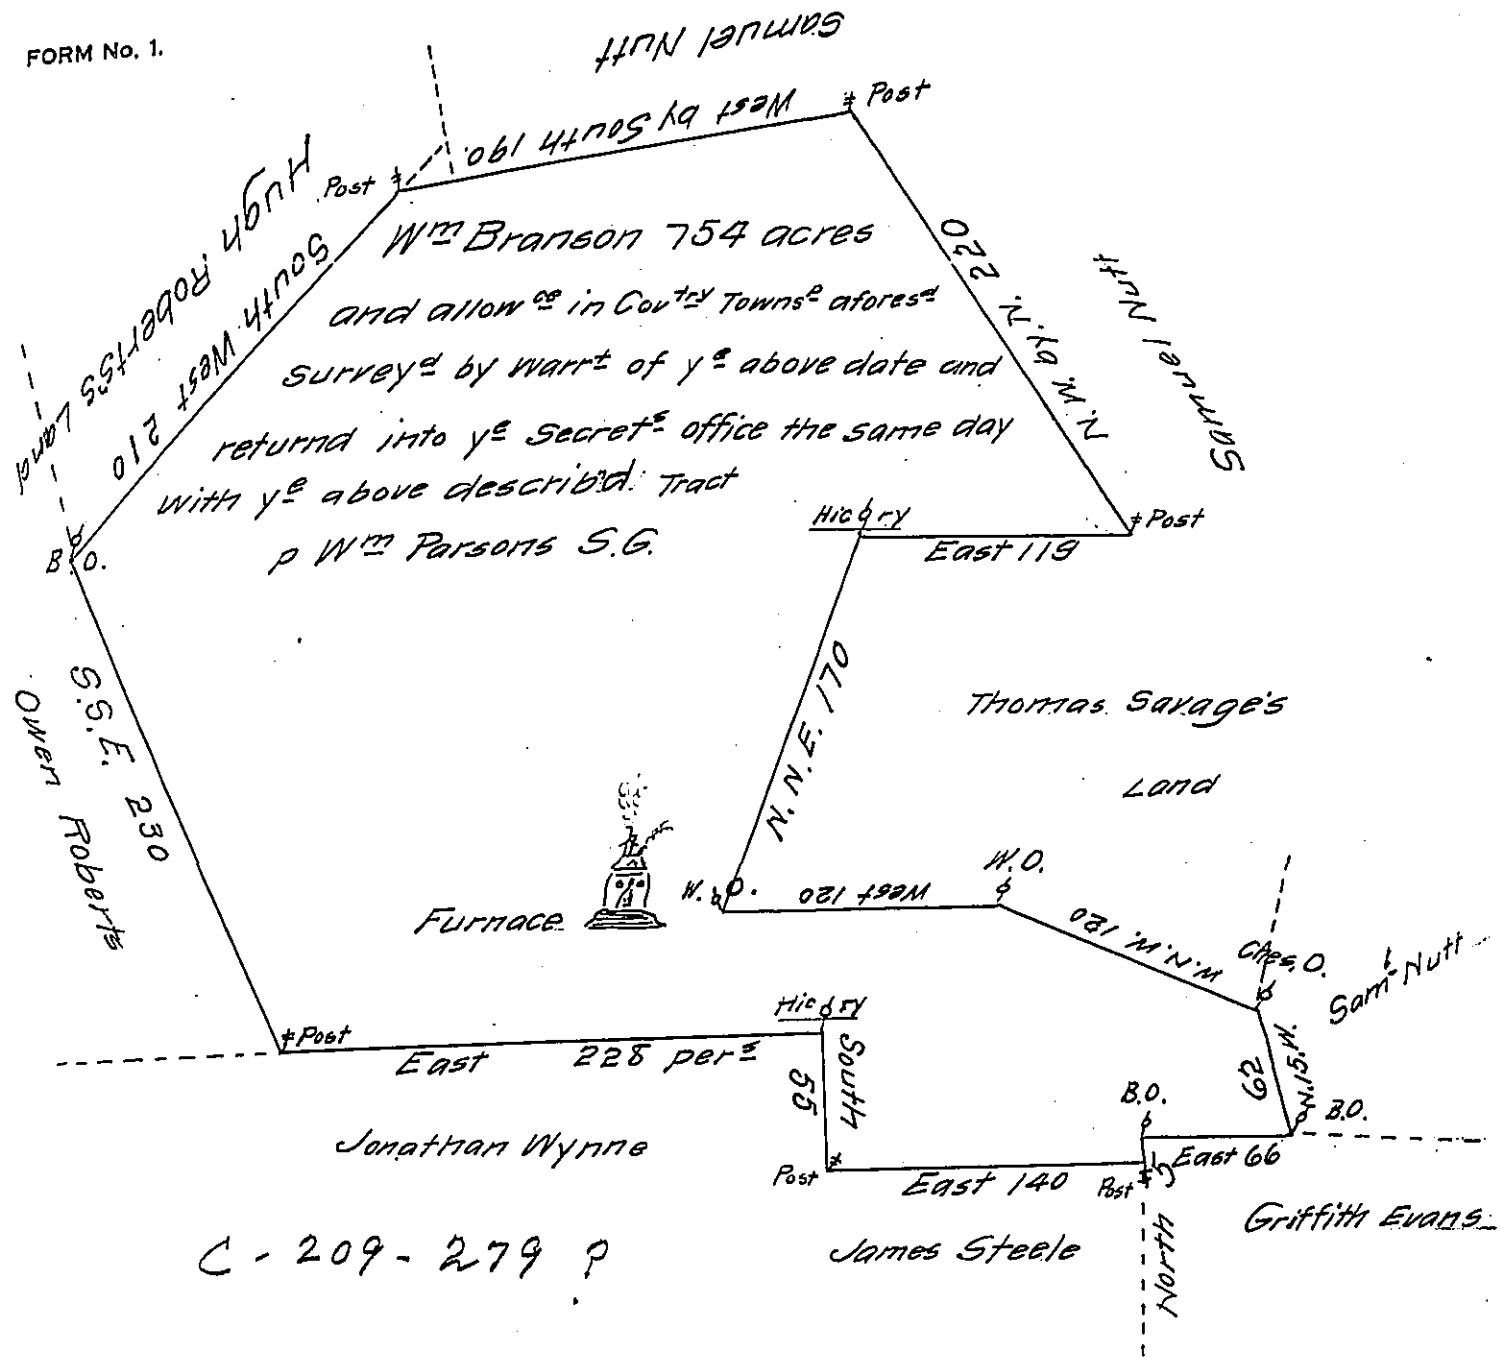 FORM No. 1.
Samuel Nutt
West by South 190.
Post
Post
Hugh Roberts's Land
South West 210
Wm Branson 754 acres
and allowce in Covtry Townsp aforesd
surveyd by Warrt of ye above date and
returnd into ye Secrets office the same day
with ye above describ'd Tract
p Wm Parsons S.G.
N.W. by N. 220
Samuel Nutt
Hicory
Post
East 119
B.O.
S.S.E. 230
Owen Roberts
N.N.E. 170
Thomas Savage's
Land
Furnace
W.O.
West 120
W.O.
W.N.W. 120
Ches. O.
Saml Nutt
N.15.W.
62
B.O.
Post
East 228 pers
Hicory
South
55
B.O.
East 66
Jonathan Wynne
Post
East 140
Post
North
Griffith Evans
James Steele
C - 209 - 279 ?